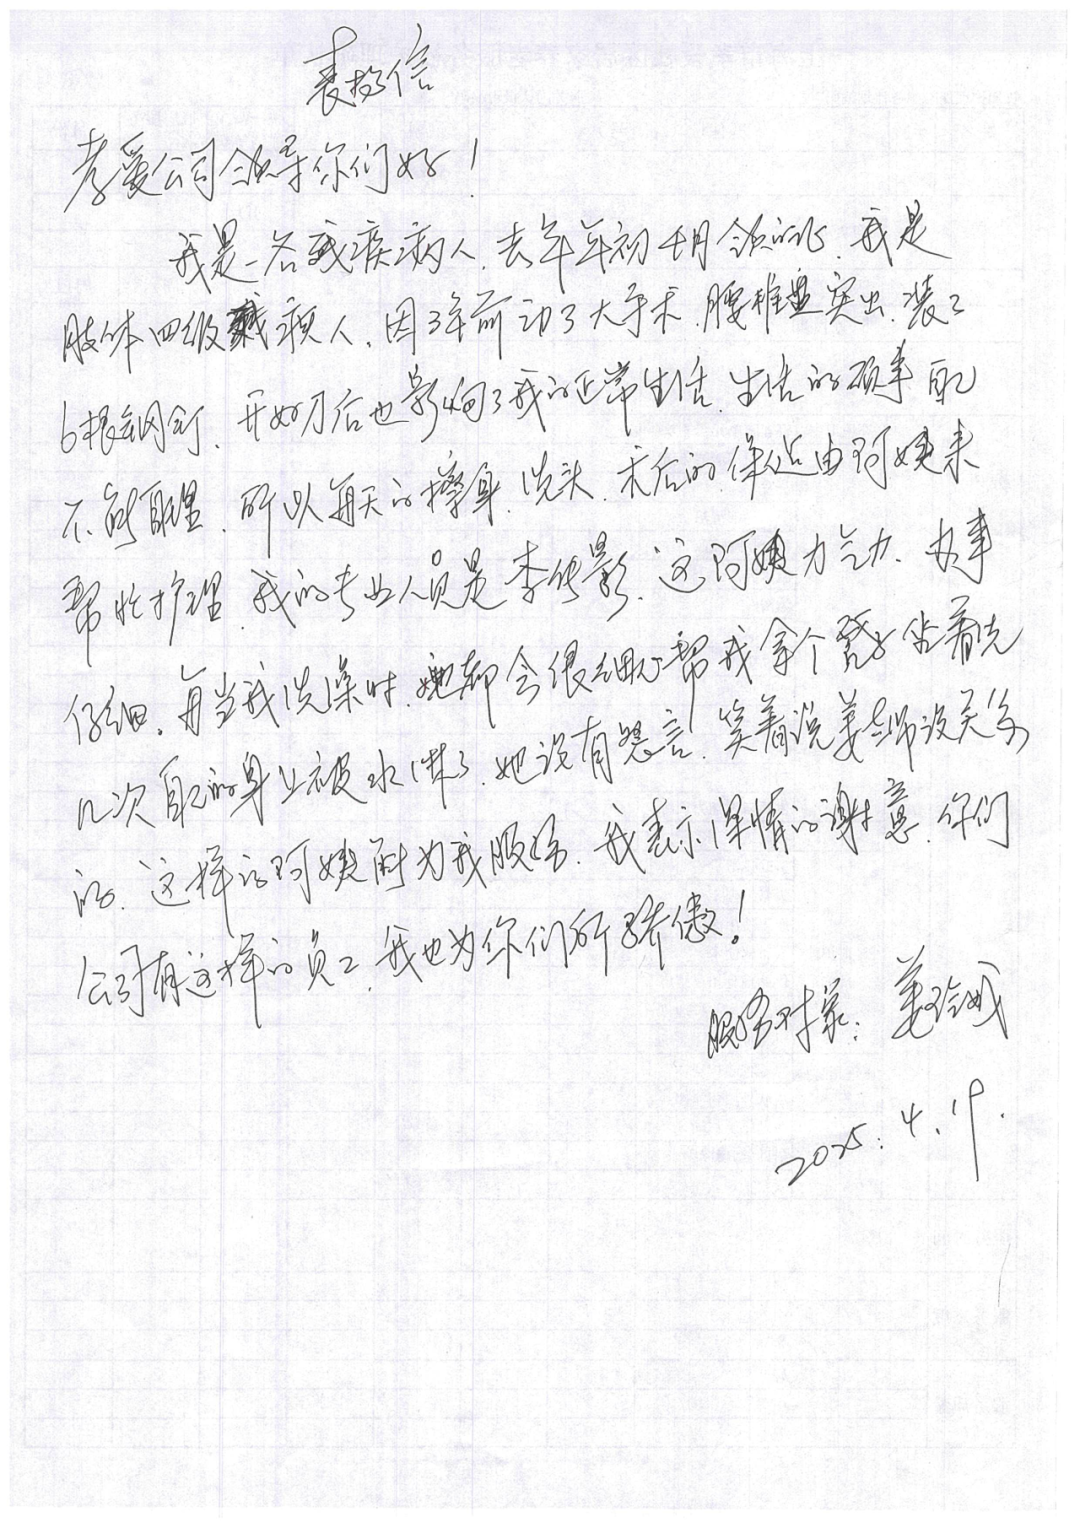 表扬信
孝爱公司领导你们好！
我是一名残疾病人，去年年初 月领的 ，我是
肢体四级残疾人，因3年前动了大手术，腰椎盘突出，装了
6根钢钉，开好刀后也影响了我的正常生活，生活的琐事自己
不能自理，所以每天的擦身，洗头，术后的 由阿姨来
帮忙护理，我的专业人员是李华影，这阿姨力气大，办事
仔细，每当我洗澡时，她都会很细心帮我拿个凳子坐着洗
几次自己的身上被水 了，她没有怨言，笑着说姜老师没关系
的，这样的阿姨能为我服务，我表示深情的谢意，你们
公司有这样的员工，我也为你们所骄傲！
服务对象：姜玲
2025.4.19.